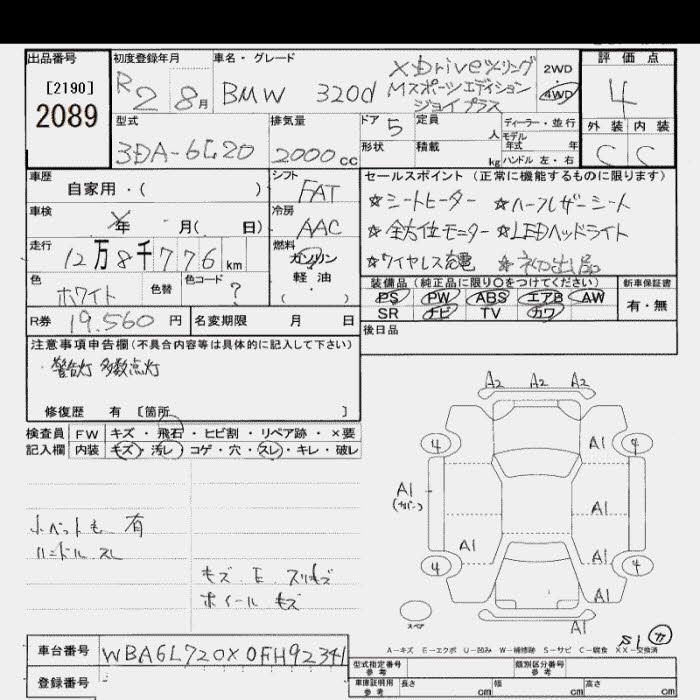 出品番号
[2190]
2089
初度登録年月
R2 8月
車名・グレード
BMW 320d
xDriveツーリング
Mスポーツエディション
ジョイプラス
2WD
4WD
評価点
4
外装 内装
C C
型式
3DA-6L20
排気量
2000cc
ドア 5
形状
定員 人
積載 kg
ディーラー・並行
モデル年式 年
ハンドル 左・右
車歴
自家用・( )
車検
年 月( 日)
走行
12万8千776km
色
ホワイト
色替
色コード
?
シフト
FAT
冷房
AAC
燃料
ガソリン
軽油
( )
R券 19,560円
名変期限 月 日
セールスポイント (正常に機能するものに限ります)
☆シートヒーター ☆ハーフレザーシート
☆全方位モニター ☆LEDヘッドライト
☆ワイヤレス充電 ☆初出品
装備品(純正品に限り○をつけてください)
PS PW ABS エアB AW
SR ナビ TV カワ
新車保証書
有・無
後日品
注意事項申告欄(不具合内容等は具体的に記入して下さい)
・警告灯 多数点灯
修復歴 有 [箇所 ]
検査員記入欄
FW キズ・飛石・ヒビ割・リペア跡・×要
内装 キズ・汚レ・コゲ・穴・スレ・キレ・破レ
小ヘットも 有
ハンドル スレ
キズ・E・スリキズ
ホイール キズ
A2 A2 A2
4 A1 4
A1
(カバー)
A1
A1 A1
4 4
A1
A1
スペア
S1 カ
A-キズ E-エクボ U-凹み W-補修跡 S-サビ C-腐食 XX-交換済
車台番号 WBA6L720X0FH92341
登録番号
型式指定番号 参考
類別区分番号 参考
車庫証明用 参考
長さ cm 幅 cm 高さ cm